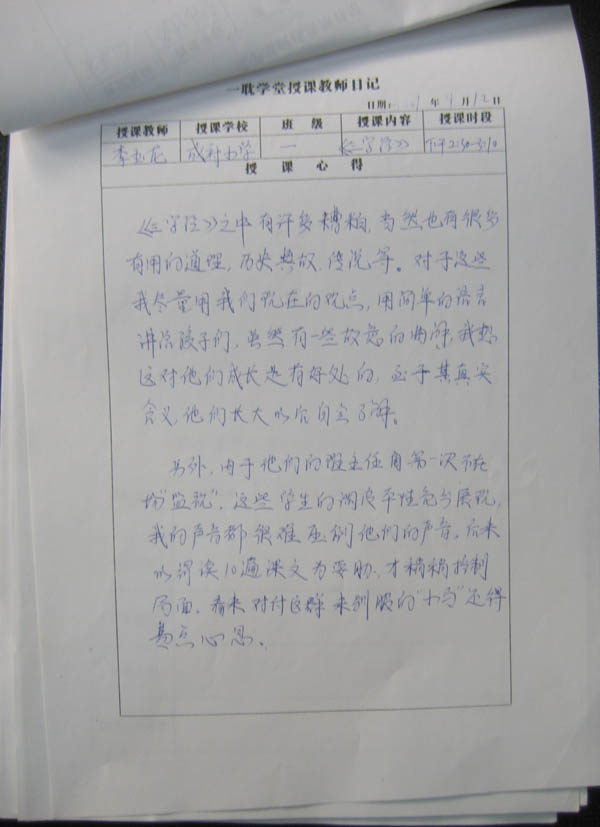 一耽学堂授课教师日记
日期: 年 月 12 日
授课教师 授课学校 班 级 授课内容 授课时段
李 龙 成科小学 一 《三字经》 下午2:30-3:10
授 课 心 得
《三字经》之中有许多糟粕,当然也有很多
有用的道理,历史典故,传说等。对于这些
我尽量用我们现在的观点,用简单的语言
讲给孩子们,虽然有一些故意的曲解,我想
这对他们成长是有好处的,至于其真实
含义,他们长大以后自会了解。
另外,由于他们的班主任自第一次不在
场"监视",这些学生的调皮本性充分展现,
我的声音都很难压制他们的声音。后来
以得读10遍课文为要胁,才稍稍控制
局面。看来对付这群未驯服的"小马"还得
费点心思。